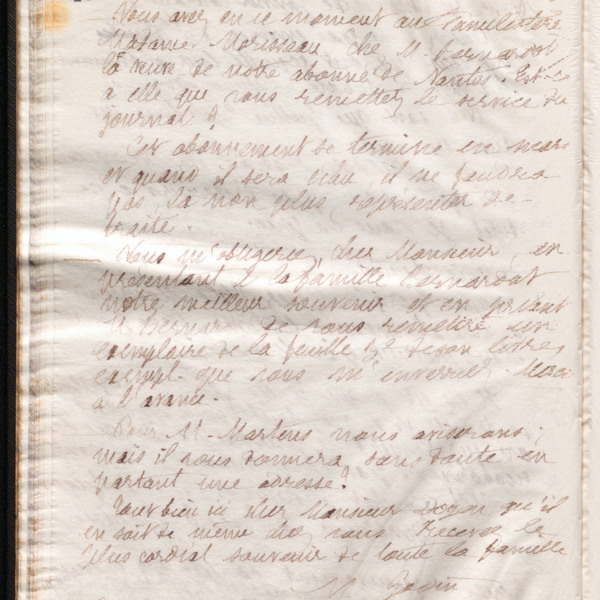 Vous avez en ce moment au Familistère
Madame Morisseau, chez M. Bernardot,
la veuve de notre abonné de Nantes. Est-ce
à elle que vous remettez le service du
journal ?
Cet abonnement se termine en mars
et quand il sera échu il ne faudra
pas, là non plus, représenter de
traite.
Vous m'obligerez, cher Monsieur, en
présentant à la famille Bernardot
notre meilleur souvenir et en priant
M. Bernardot de vous remettre un
exemplaire de la feuille de son livre,
exempl. que vous m'enverrez. Merci
à l'avance.
Pour M. Martens nous aviserons ;
mais il vous donnera sans doute en
partant une adresse ?
Tout bien ici cher Monsieur Doyen qu'il
en soit de même chez vous. Recevez le
plus cordial souvenir de toute la famille
Godin